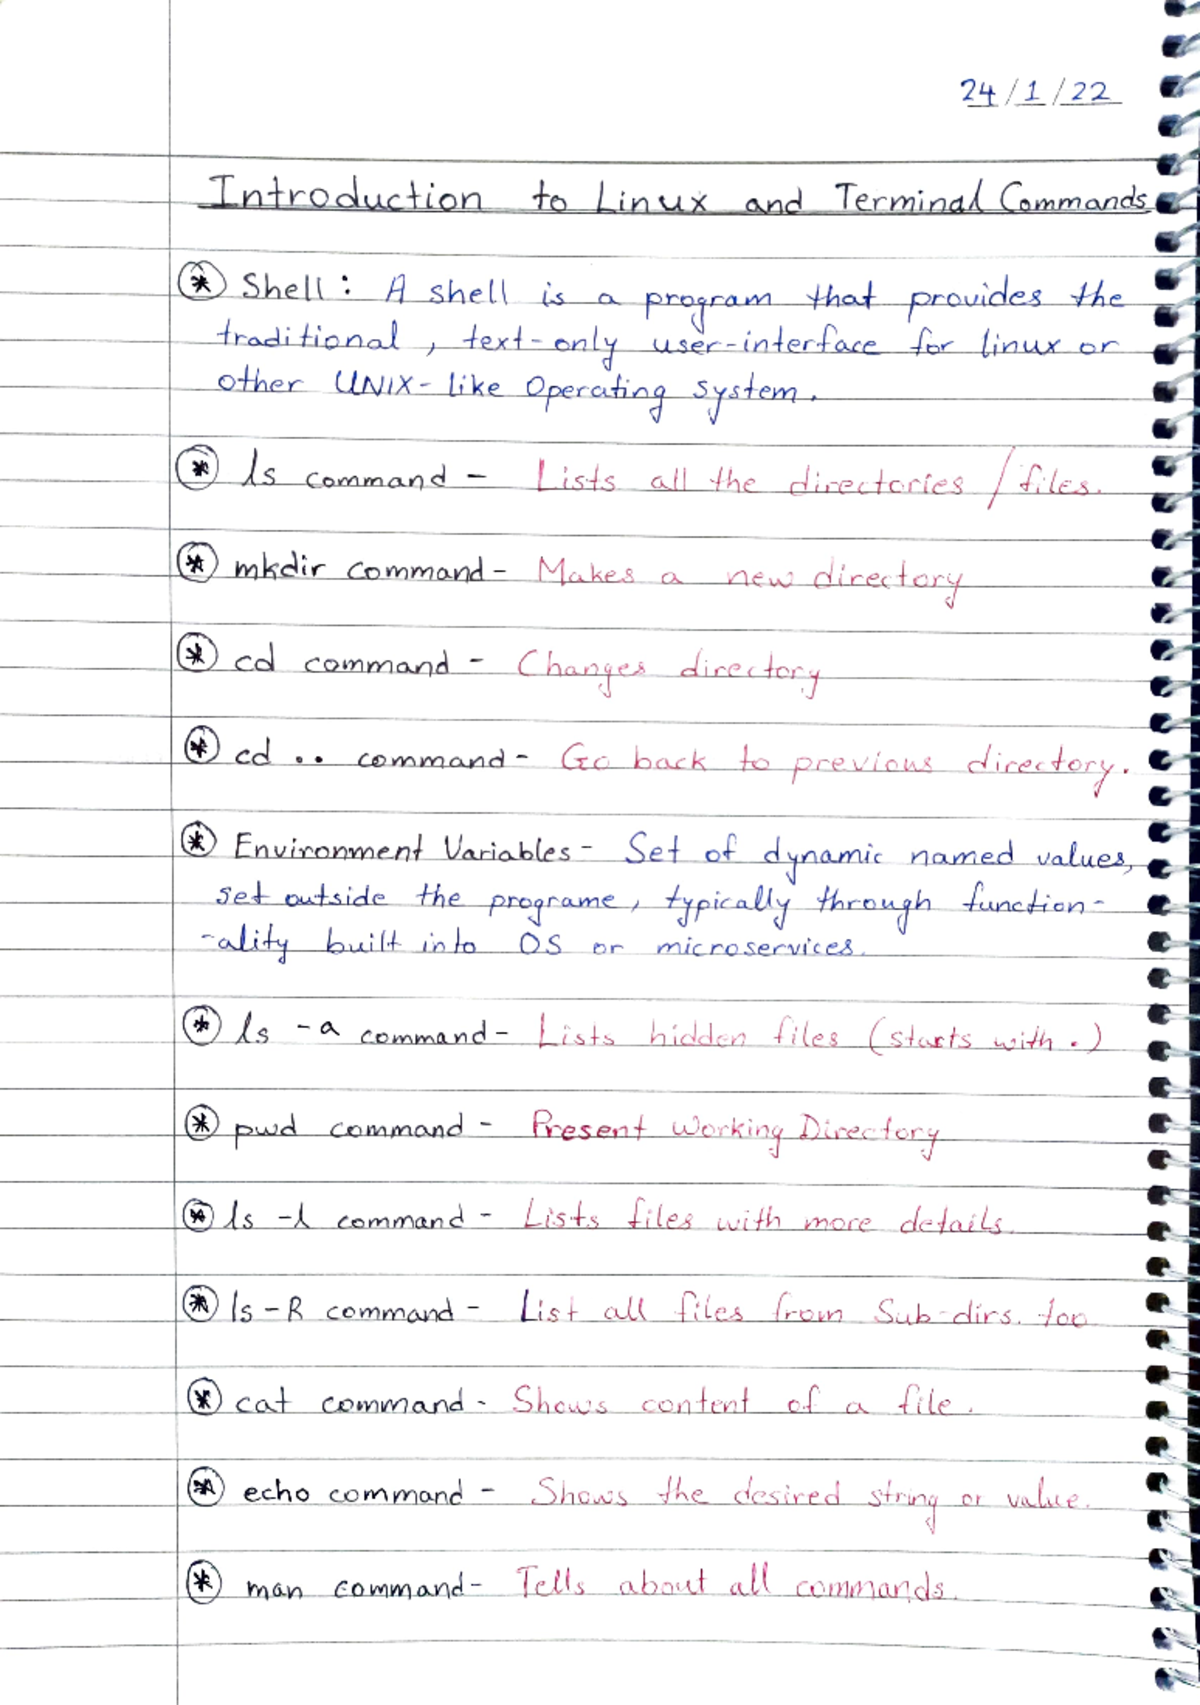 24/1/22
Introduction to Linux and Terminal Commands
⊛ Shell: A shell is a program that provides the
traditional, text-only user-interface for linux or
other UNIX-like Operating system.
⊛ ls command - Lists all the directories / files.
⊛ mkdir command - Makes a new directory
⊛ cd command - Changes directory
⊛ cd .. command - Go back to previous directory.
⊛ Environment Variables - Set of dynamic named values,
set outside the programe, typically through function-
-ality built into OS or microservices.
⊛ ls -a command - Lists hidden files (starts with .)
⊛ pwd command - Present Working Directory
⊛ ls -l command - Lists files with more details.
⊛ ls -R command - List all files from Sub-dirs. too
⊛ cat command - Shows content of a file.
⊛ echo command - Shows the desired string or value.
⊛ man command - Tells about all commands.